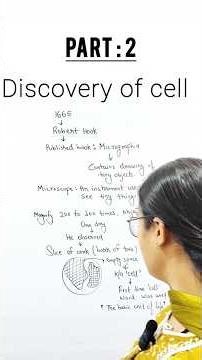 PART : 2
Discovery of cell
1665
Robert Hook
Published book : Micrographia
Contains drawing of
tiny objects
Microscope : An instrument used
See tiny things
Magnify 200 to 300 times.
One day
He observed
Slice of cork (bark of tree)
empty space
k/a "cell"
First time 'cell'
Word was used
"The basic unit of life"